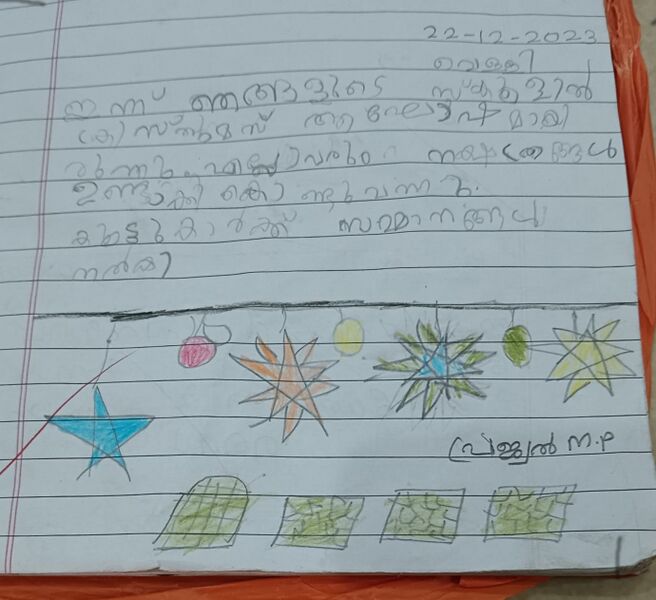 22-12-2023
വെള്ളി
ഇന്ന് ഞങ്ങളുടെ സ്കൂളിൽ
ക്രിസ്തുമസ് ആഘോഷമായി
രുന്നു. എല്ലാവരും നക്ഷത്രങ്ങൾ
ഉണ്ടാക്കി കൊണ്ടുവന്നു.
കൂട്ടുകാർക്ക് സമ്മാനങ്ങൾ
നൽകി
പ്രജ്വൽ M.P